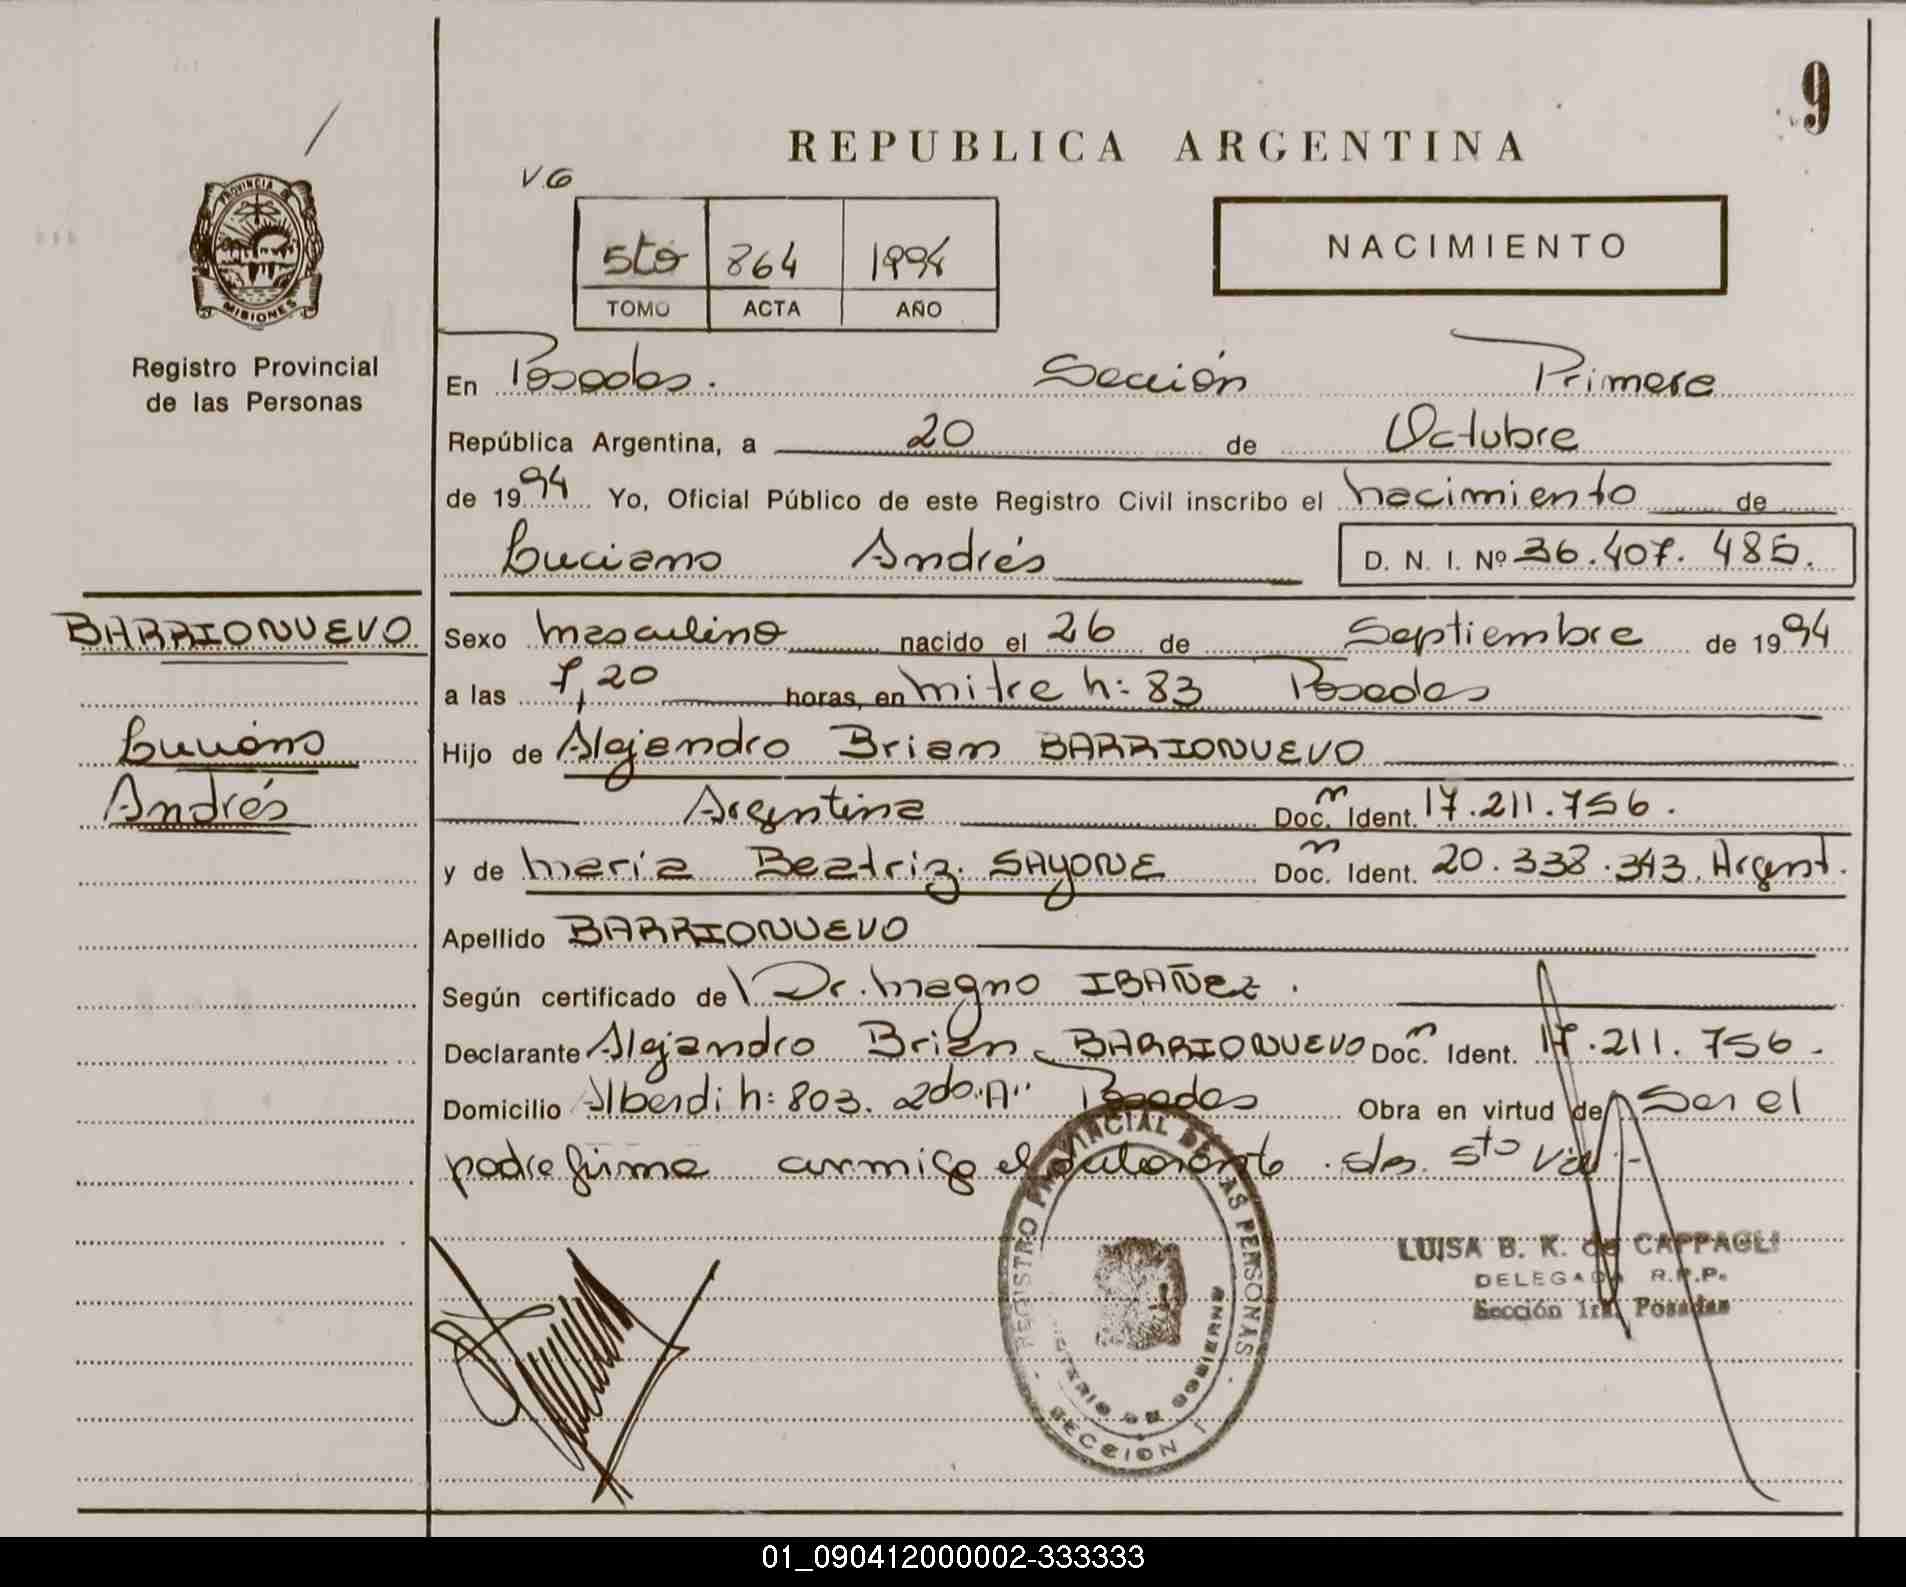 9
REPUBLICA ARGENTINA
V.G
PROVINCIA DE
MISIONES
Registro Provincial
de las Personas
5to 864 1994
TOMO ACTA AÑO
NACIMIENTO
En Posadas. Sección Primera
República Argentina, a 20 de Octubre
de 1994 Yo, Oficial Público de este Registro Civil inscribo el nacimiento de
Luciano Andrés D. N. I. Nº 36.407.485.
BARRIONUEVO
Luciano
Andrés
Sexo masculino nacido el 26 de Septiembre de 1994
a las 7,20 horas, en mitre n: 83 Posadas
Hijo de Alejandro Brian BARRIONUEVO
Argentina Doc. Ident. 17.211.756.
y de maria Beatriz SAYONE Doc. Ident. 20.338.343. Argent.
Apellido BARRIONUEVO
Según certificado de Dr. magno IBAÑEZ.
Declarante Alejandro Brian BARRIONUEVO Doc. Ident. 17.211.756.
Domicilio Alberdi n: 803. 2do "A" Posadas Obra en virtud de Ser el
padre firma conmigo el declarante.
REGISTRO PROVINCIAL DE LAS PERSONAS
MINISTERIO DE GOBIERNO
SECCION 1
LUISA B. K. de CAPPAGLI
DELEGADA R.P.P.
Sección 1ra. Posadas
01_090412000002-333333